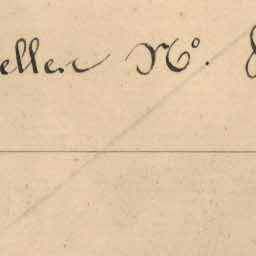 eller Nº.